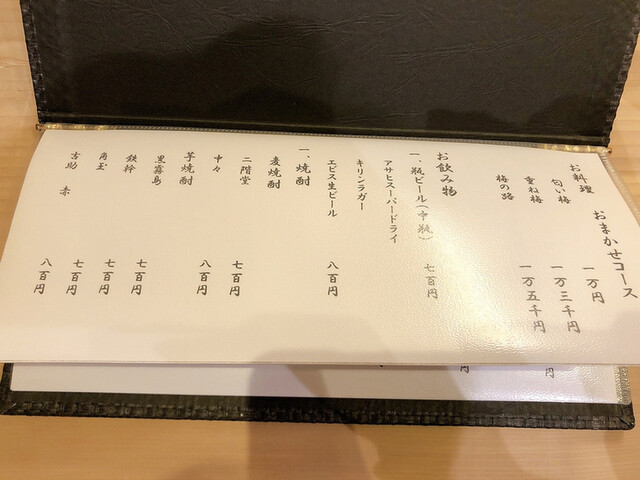 お料理 おまかせコース
匂い梅 一万円
重ね梅 一万三千円
梅の路 一万五千円
お飲み物
一、瓶ビール(中瓶) 七百円
アサヒスーパードライ
キリンラガー
エビス生ビール 八百円
一、焼酎
麦焼酎
二階堂 七百円
中々 八百円
芋焼酎
黒霧島 七百円
鉄幹 七百円
角玉 七百円
吉助 赤 八百円